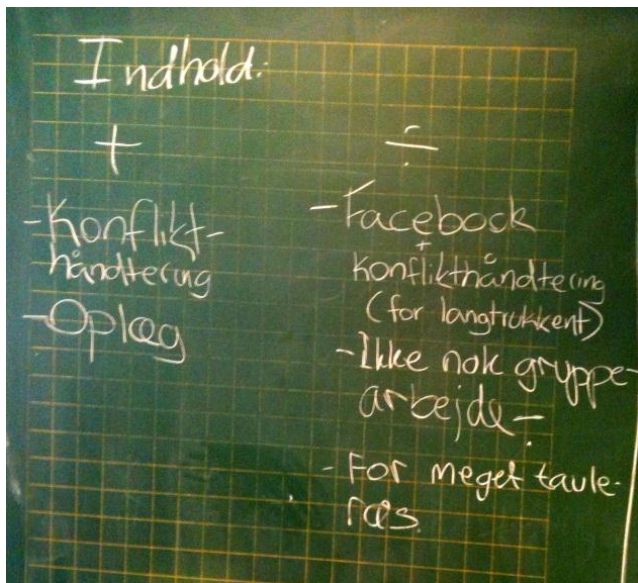 Indhold:
+
- Konflikt-
håndtering
- Oplæg
÷
- Facebook
+
Konflikthåndtering
(for langtrukkent)
- Ikke nok gruppe-
arbejde ÷
- For meget tavle-
ræs.